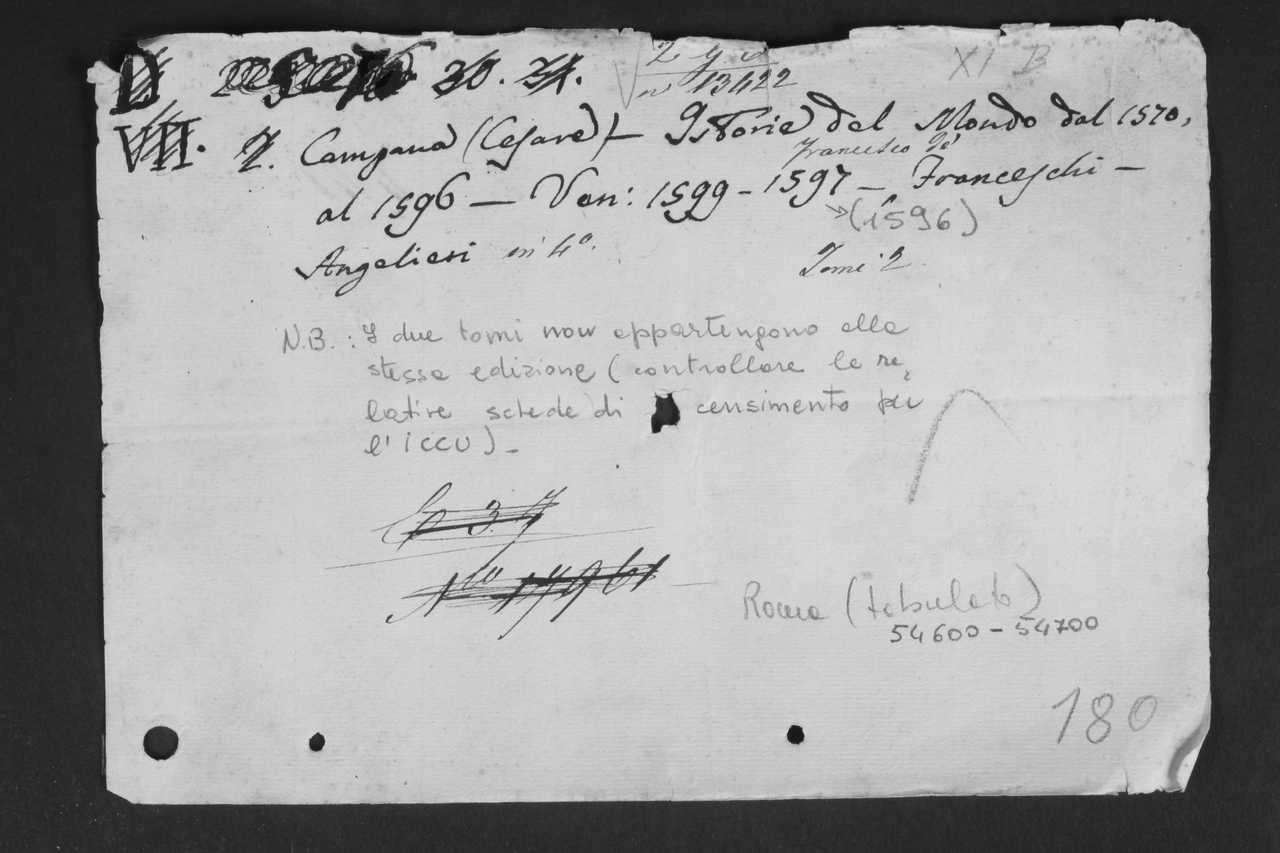 D 30. 31.
2 y v
nº 13422
XI B
VII. 7. Campana (Cesare) - Istorie del Mondo dal 1570,
Francesco de'
al 1596 — Ven: 1599 - 1597 — Franceschi —
(1596)
Angelieri in 4º. Tomi 2
N.B.: I due tomi non appartengono alla
stessa edizione (controllare le re-
lative schede di censimento per
l'ICCU) -
Co 3.7
Nº 17961
Roma (tabulato)
54600 - 54700
180